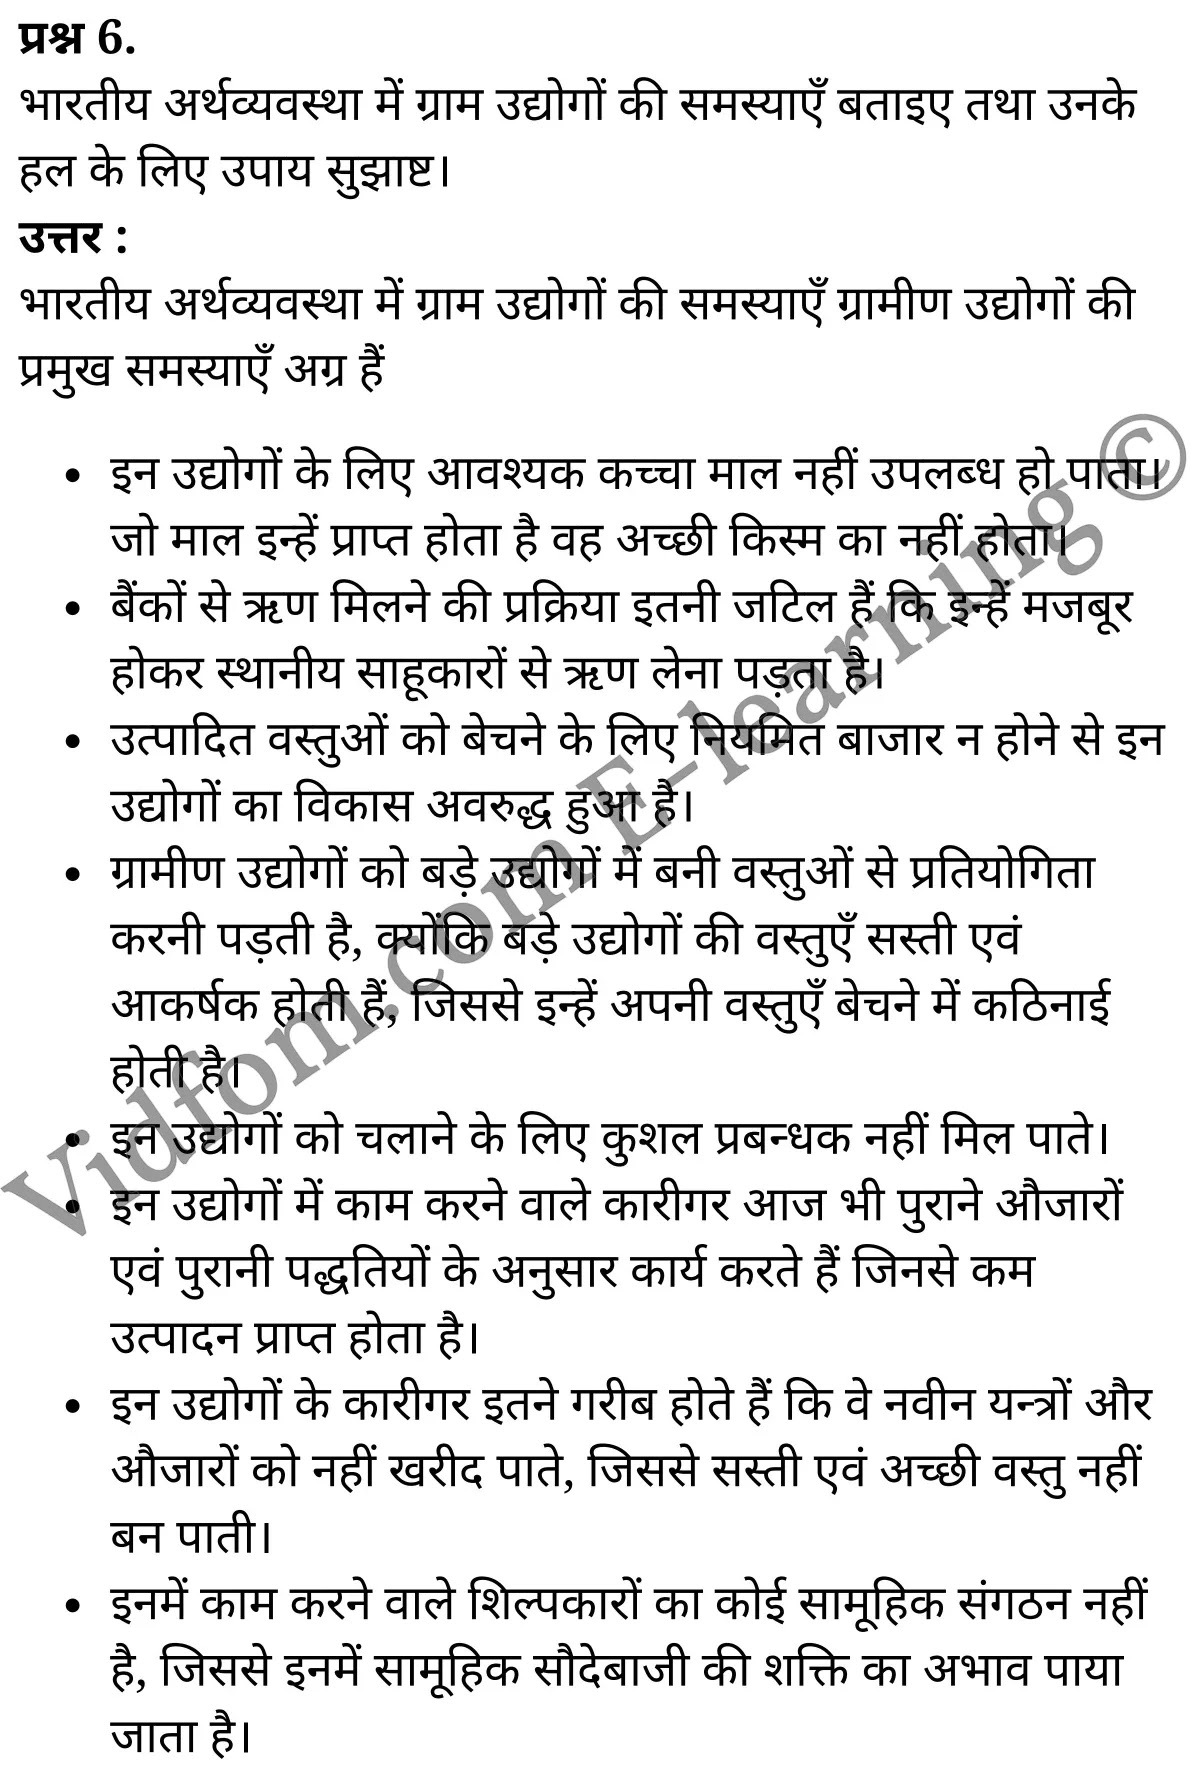 प्रश्न 6.
भारतीय अर्थव्यवस्था में ग्राम उद्योगों की समस्याएँ बताइए तथा उनके
हल के लिए उपाय सुझाष्ट।
उत्तर :
भारतीय अर्थव्यवस्था में ग्राम उद्योगों की समस्याएँ ग्रामीण उद्योगों की
प्रमुख समस्याएँ अग्र हैं
• इन उद्योगों के लिए आवश्यक कच्चा माल नहीं उपलब्ध हो पाता।
जो माल इन्हें प्राप्त होता है वह अच्छी किस्म का नहीं होता।
• बैंकों से ऋण मिलने की प्रक्रिया इतनी जटिल हैं कि इन्हें मजबूर
होकर स्थानीय साहूकारों से ऋण लेना पड़ता है।
• उत्पादित वस्तुओं को बेचने के लिए नियमित बाजार न होने से इन
उद्योगों का विकास अवरुद्ध हुआ है।
• ग्रामीण उद्योगों को बड़े उद्योगों में बनी वस्तुओं से प्रतियोगिता
करनी पड़ती है, क्योंकि बड़े उद्योगों की वस्तुएँ सस्ती एवं
आकर्षक होती हैं, जिससे इन्हें अपनी वस्तुएँ बेचने में कठिनाई
होती है।
• इन उद्योगों को चलाने के लिए कुशल प्रबन्धक नहीं मिल पाते।
• इन उद्योगों में काम करने वाले कारीगर आज भी पुराने औजारों
एवं पुरानी पद्धतियों के अनुसार कार्य करते हैं जिनसे कम
उत्पादन प्राप्त होता है।
• इन उद्योगों के कारीगर इतने गरीब होते हैं कि वे नवीन यन्त्रों और
औजारों को नहीं खरीद पाते, जिससे सस्ती एवं अच्छी वस्तु नहीं
बन पाती।
• इनमें काम करने वाले शिल्पकारों का कोई सामूहिक संगठन नहीं
है, जिससे इनमें सामूहिक सौदेबाजी की शक्ति का अभाव पाया
जाता है।
Vidfom.com E-learning ©